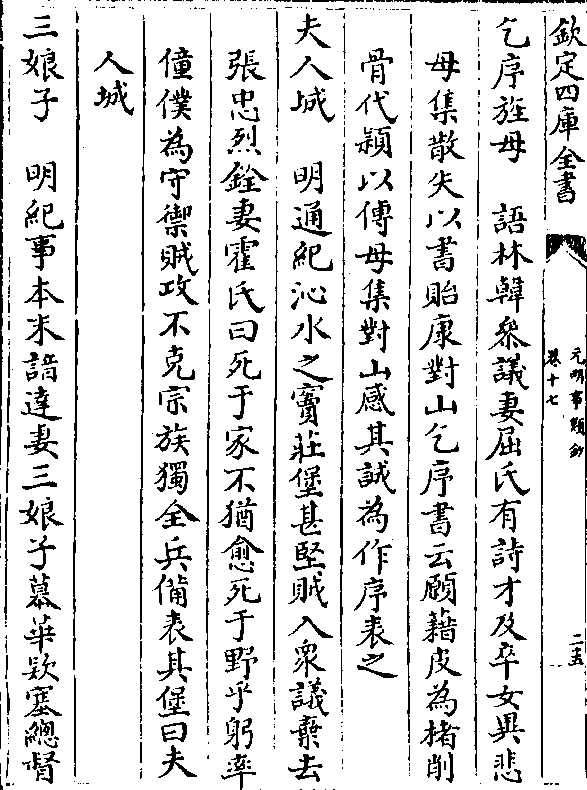 欽定四庫全書
元明事類鈔
卷十七
二五
乞序旌母　語林韓叅議妻屈氏有詩才及卒女異悲
母集散失以書貽康對山乞序書云願藉皮為楮削
骨代穎以傳母集對山感其誠為作序表之
夫人城　明通紀沁水之竇莊堡甚堅賊入衆議棄去
張忠烈銓妻霍氏曰死于家不猶愈死于野乎躬率
僮僕為守禦賊攻不克宗族獨全兵備表其堡曰夫
人城
三娘子　明紀事本末諳達妻三娘子慕華欵塞總督